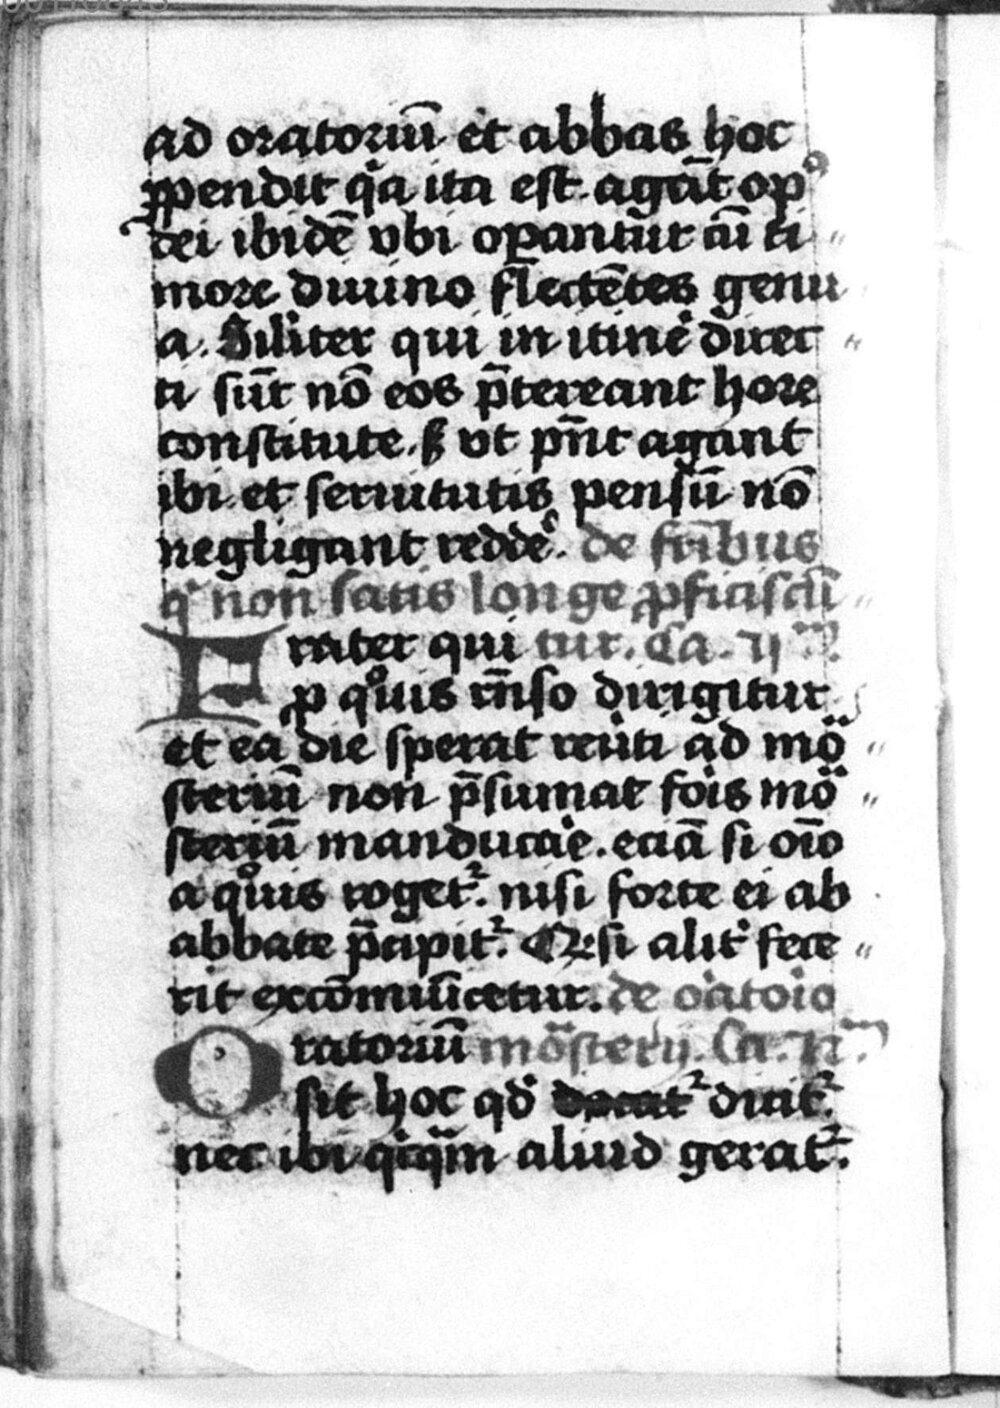 ad oratoriū et abbas hoc
ꝑpendit qͣa ita est. agāt opꝰ
dei ibidē vbi oꝑantur̄ cū ti〃
more diuino flectētes genu
a. Silr̄iter qui in itineͬ direc〃
ti sūt nō eos p̄tereant hore
constitute. sꝫ vt pn̄t agant
ibi et seruitutis pensū nō
negligant reddeͬ. de fr̄ibus
qͥ non satis longe ꝓficiscū〃
Frater qui tur. Ca. ij
ꝓ qͦuis rn̄so dirigitur
et ea die sperat reuͬti ad moͣ〃
steriū non p̄sumat foͬis moͣ〃
steriū manducaͬe. eciā si oīo
a qͦuis roget᷑. nisi forte ei ab
abbate p̄cipit᷑. Qꝫ si alit᷑ fece〃
rit excōmūicetur. de oͬatoͬio
Oratoriū moͣsterij. Ca.
sit hoc qd̄ dicit᷑.
nec ibi qͥcqͣm aliud gerat᷑.